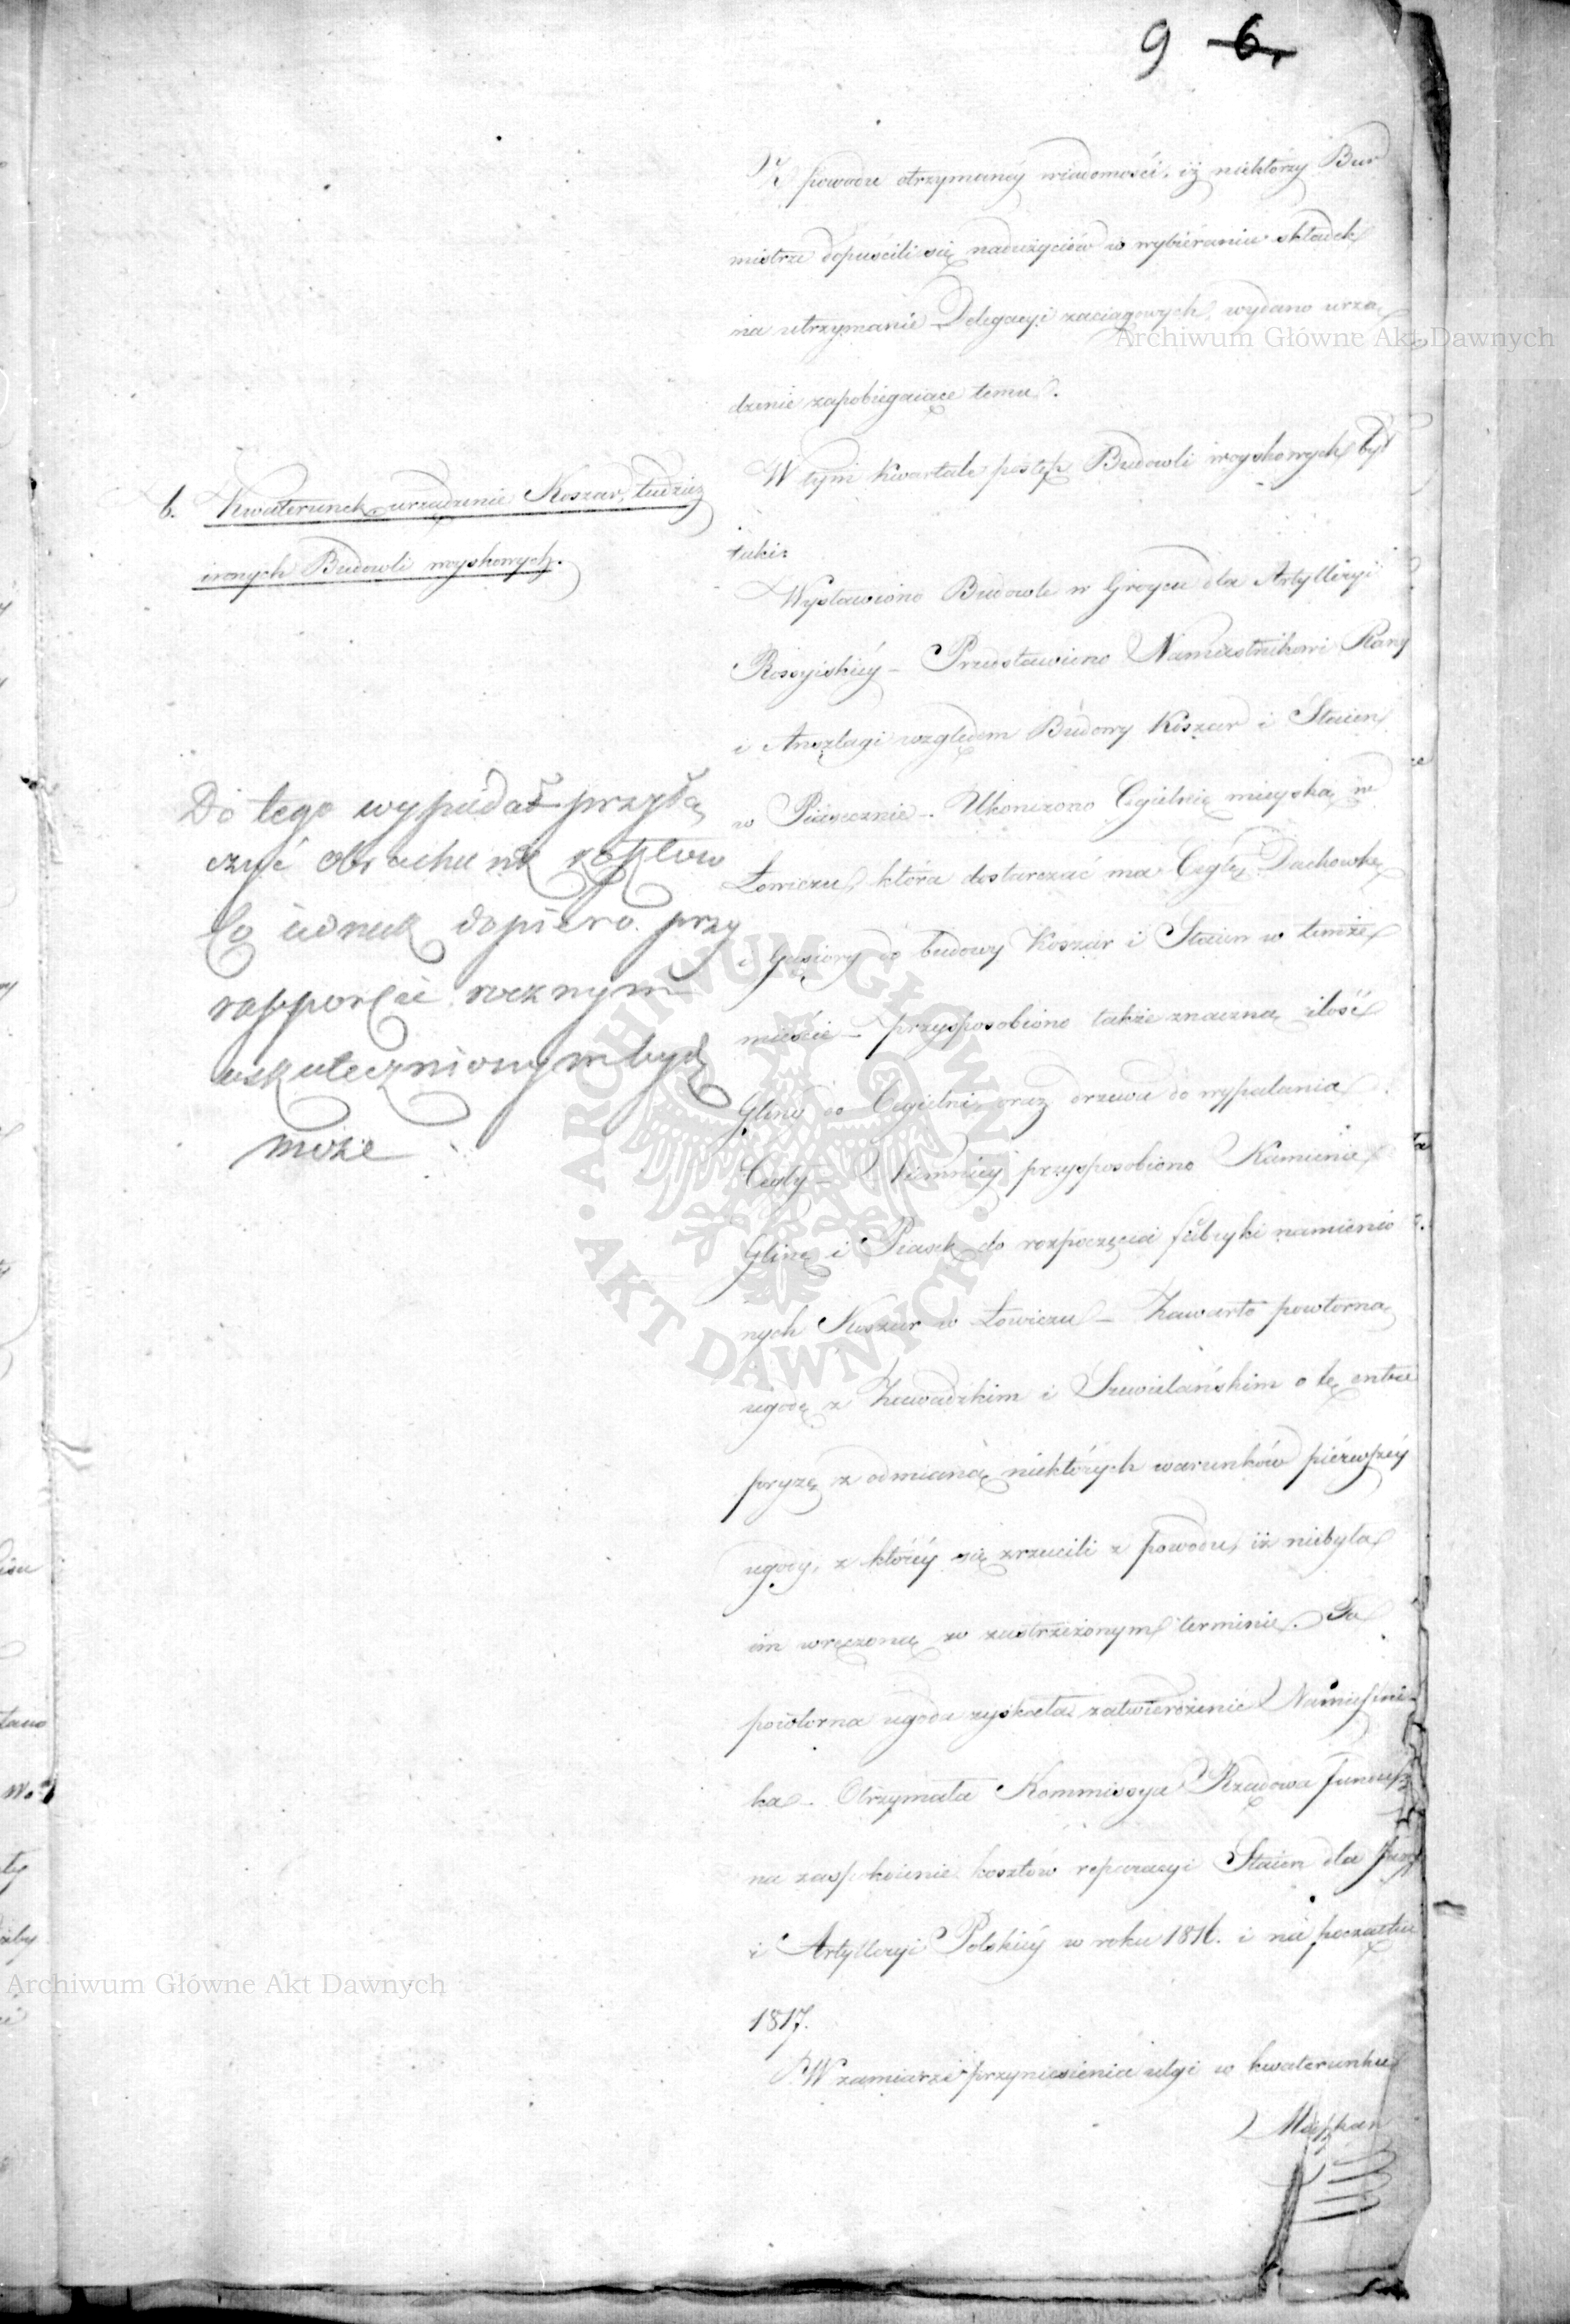 9 6.
Z powodu otrzymanéy wiadomości, iż niektórzy Bur
mistrze dopuścili się nadużyciów w wybiéraniu składek
na utrzymanie Delegacyi zaciągowych, wydano urzą
dzenie zapobiegaiące temu.
b. Kwaterunek urządzenie Koszar, tudzież
innych Budowli woyskowych.
W tym kwartale postęp Budowli woyskowych był
taki:
Wystawiono Budowle w Groycu dla Artylleryi
Rossyiskiéy – Przedstawiono Namiestnikowi Plany
i Anszlagi względem Budowy Koszar i Staien
w Piasecznie – Ukończono Cegielnię mieyską w
Łowiczu, która dostarczać ma Cegłę, Dachówkę
i Gąsiory do budowy Koszar i Staien w temże
mieście – przysposobiono także znaczną ilość
Gliny do Cegielni, oraz drzewa do wypalania
Cegły – Niemniéy przysposobiono Kamienie
Glinę i Piasek do rozpoczęcia fabryki namienio
nych Koszar w Łowiczu – Zawarto powtorną
ugodę z Zawadzkim i Szwielańskim o tę entre
pryzę z odmianą niektórych warunków piérwszéy
ugody, z któréy się zrzucili z powodu, iż niebyła
im wręczoną w zastrzeżonym terminie. Ta
powtorna ugoda zyskała zatwierdzenie Namiestni
ka – Otrzymała Kommissya Rządowa Fundusz
na zaspokoienie kosztów reparacyi Staien dla
i Artylleryi Polskiéy w roku 1816. i na początku
1817.
W zamiarze przyniesienia ulgi w kwaterunku
Do tego wypada przyłą
czyć obrachunek
Co iednak dopiero przy
rapporcie rocznym
uskutecznionym bydź
może
Archiwum Główne Akt Dawnych
Archiwum Główne Akt Dawnych
ARCHIWUM GŁÓWNE · AKT DAWNYCH ·